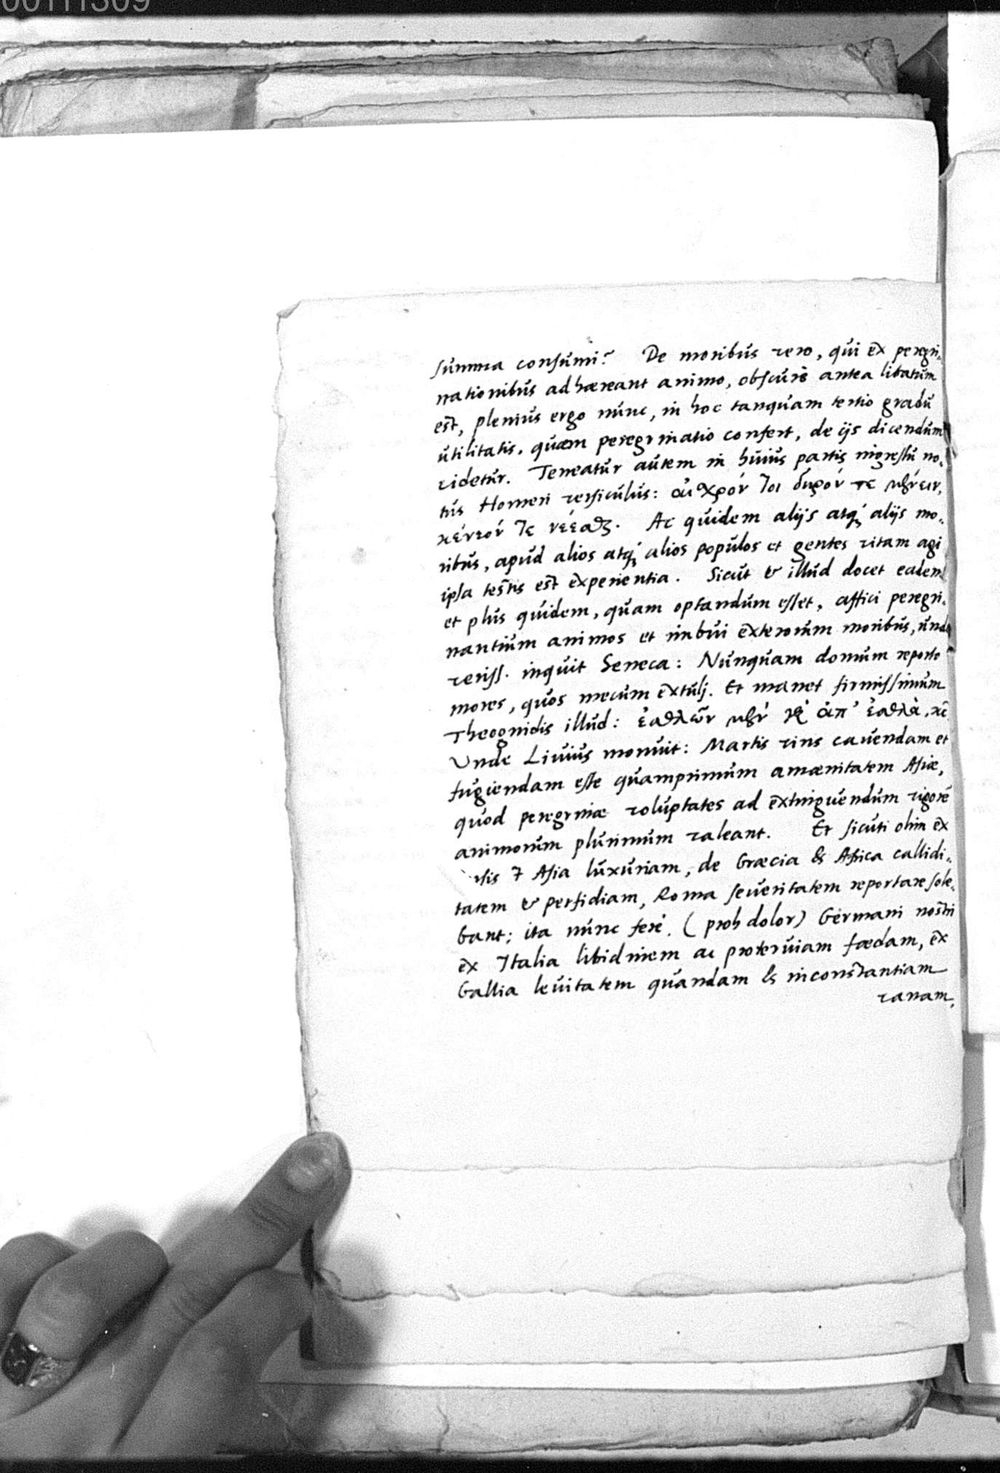 00111309
summa consumi? De moribus vero, qui ex peregri-
nationibus adhæreant animo, obscurè antea libatum
est, plenius ergo nunc, in hoc tanquam tertio gradu
utilitatis, quam peregrinatio confert, de ijs dicendum
videtur. Teneatur autem in huius partis ingressu no-
tus Homeri versiculus:
Ac quidem alijs atq; alijs mo-
ribus, apud alios atq; alios populos et gentes vitam agi
ipsa testis est experientia. Sicut & illud docet eadem
et plus quidem, quam optandum esset, affici peregri-
nantium animos et imbui exterorum moribus, unde
veriss. inquit Seneca: Nunquam domum reporto
mores, quos mecum extulj. Et manet firmissimum
Theognidis illud: ἐσθλῶν μὲν γὰρ ἀπ' ἐσθλὰ,
Unde Liuius monuit: Martis viris cavendam et
fugiendam esse quamprimum amœnitatem Asiæ,
quod peregrinæ voluptates ad extinguendum vigorē
animorum plurimum valeant. Et sicuti olim ex
Asia luxuriam, de Græcia & Africa callidi-
tatem & perfidiam, Roma severitatem reportare sole-
bant; ita nunc ferè, (proh dolor) Germani nostri
ex Italia libidinem ac proteruiam fœdam, ex
Gallia levitatem quandam & inconstantiam
vanam,